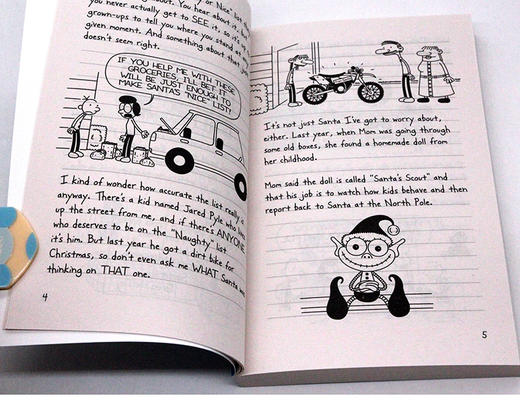 or Nice" list
about. You hear about it
you never actually get to SEE it, so it's
grown-ups to tell you where you stand at
given moment. And something about that
doesn't seem right.
IF YOU HELP ME WITH THESE
GROCERIES, I'LL BET IT
WILL BE JUST ENOUGH TO
MAKE SANTA'S "NICE" LIST!
I kind of wonder how accurate the list really
anyway. There's a kid named Jared Pyle who
up the street from me, and if there's ANYONE
who deserves to be on the "Naughty" list
it's him. But last year he got a dirt bike for
Christmas, so don't even ask me WHAT Santa was
thinking on THAT one.
4
It's not just Santa I've got to worry about,
either. Last year, when Mom was going through
some old boxes, she found a homemade doll from
her childhood.
Mom said the doll is called "Santa's Scout" and
that his job is to watch how kids behave and then
report back to Santa at the North Pole.
5